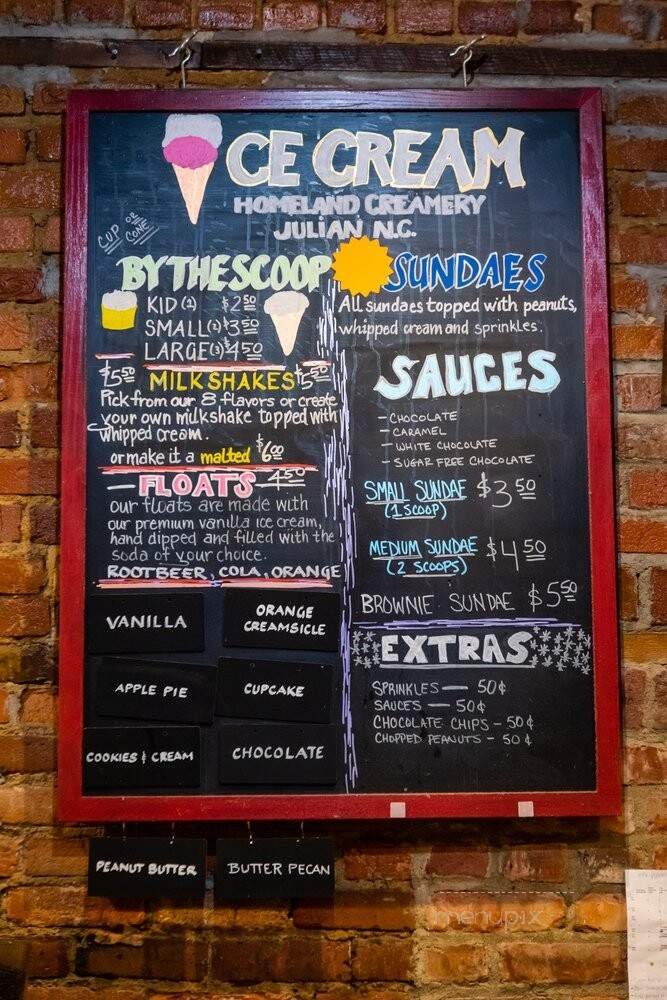 ICE CREAM
HOMELAND CREAMERY
JULIAN N.C.
CUP OR
CONE
BY THE SCOOP
KID (1) $2 50
SMALL (2) $3 50
LARGE (3) $4 50
$5 50 MILKSHAKES $5 50
Pick from our 8 flavors or create
your own milkshake topped with
whipped cream.
or make it a malted $6 00
FLOATS — 4 50
our floats are made with
our premium vanilla ice cream,
hand dipped and filled with the
soda of your choice.
ROOTBEER, COLA, ORANGE
VANILLA
ORANGE
CREAMSICLE
APPLE PIE
CUPCAKE
COOKIES & CREAM
CHOCOLATE
PEANUT BUTTER
BUTTER PECAN
SUNDAES
All sundaes topped with peanuts,
whipped cream and sprinkles.
SAUCES
- CHOCOLATE
- CARAMEL
- WHITE CHOCOLATE
- SUGAR FREE CHOCOLATE
SMALL SUNDAE $3 50
(1 SCOOP)
MEDIUM SUNDAE $4 50
(2 SCOOPS)
BROWNIE SUNDAE $5 50
EXTRAS
SPRINKLES — 50¢
SAUCES — 50¢
CHOCOLATE CHIPS - 50¢
CHOPPED PEANUTS - 50¢
menupix